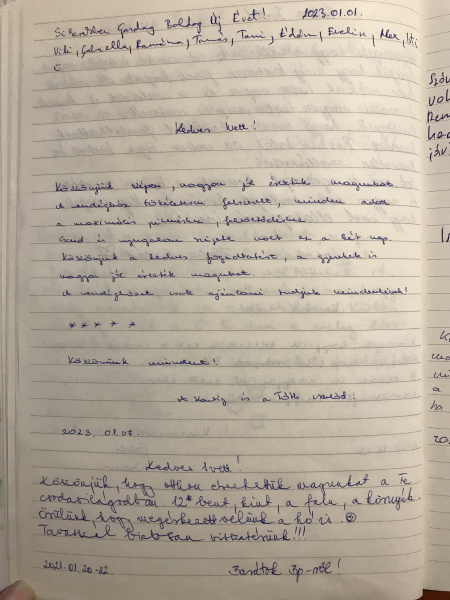 Sikerekben Gazdag Boldog Új Évet! 2023.01.01.
Viki, Gabriella, Ramóna, Tamás, Tomi, Ádám, Evelin,
Kedves Ivett!
Köszönjük szépen, nagyon jól éreztük magunkat.
A vendégház tökéletesen felszerelt, minden adott
a maximális pihenésre, feltöltődésre.
Csend és nyugalom szigete volt ez a két nap.
Köszönjük a kedves fogadtatást, a gyerekek is
nagyon jól érezték magukat.
A vendégházat csak ajánlani tudjuk mindenkinek!
* * * * *
Köszönünk mindent!
A és a Tóth család!
2023. 01.08.
Kedves Ivett!
Köszönjük, hogy otthon érezhettük magunkat a Te
csodavilágodban. 12* bent, kint, a falu, a környék.
Örülünk, hogy megérkezett velünk a hó is.
Tavasszal biztosan visszatérünk!!!
2021.01.20-22. Barátok Bp-ről!